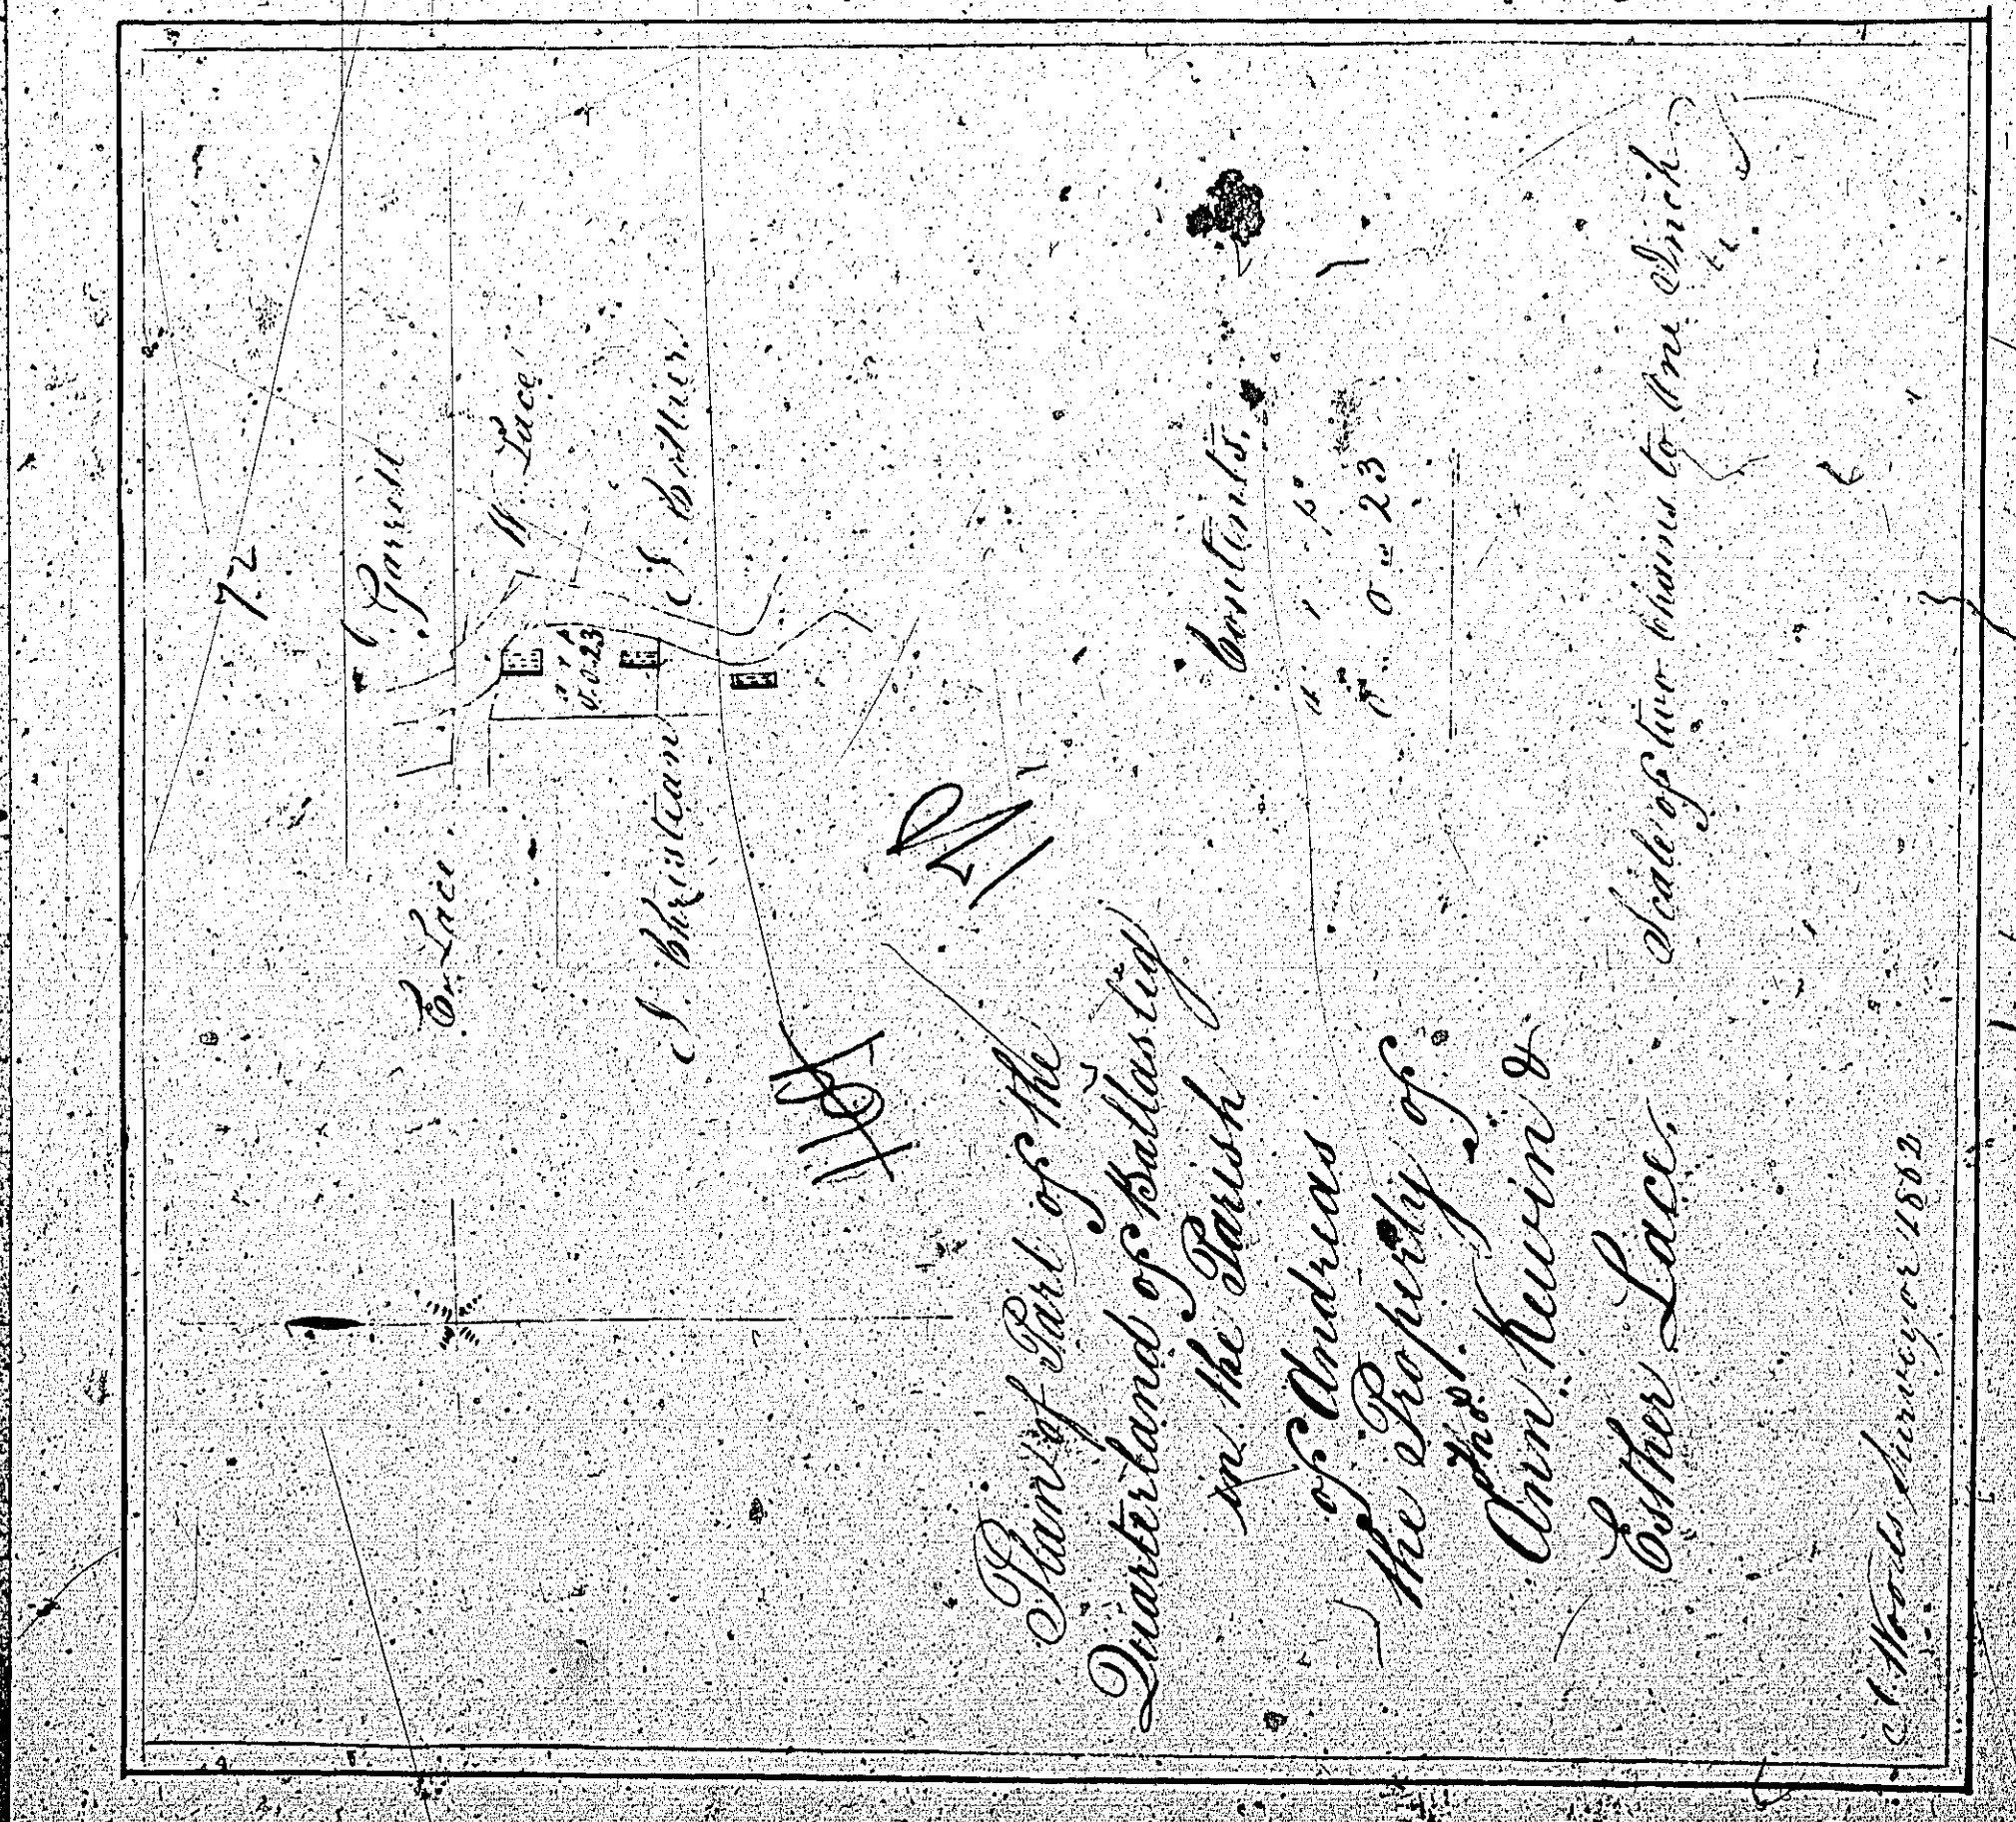 72
Garrett
E. Lace
W. Lace
a r p
0.0.23
J. Christean
E. Collier
Plan of Part of the
Quarterland of Ballaslig
in the Parish
of Andreas
the Property of
Thos.
Ann Kewin &
Esther Lace.
Contents.
a r p
0 .. 0 .. 23
Scale of two Chains to One Inch
J. Woods Surveyor 1862